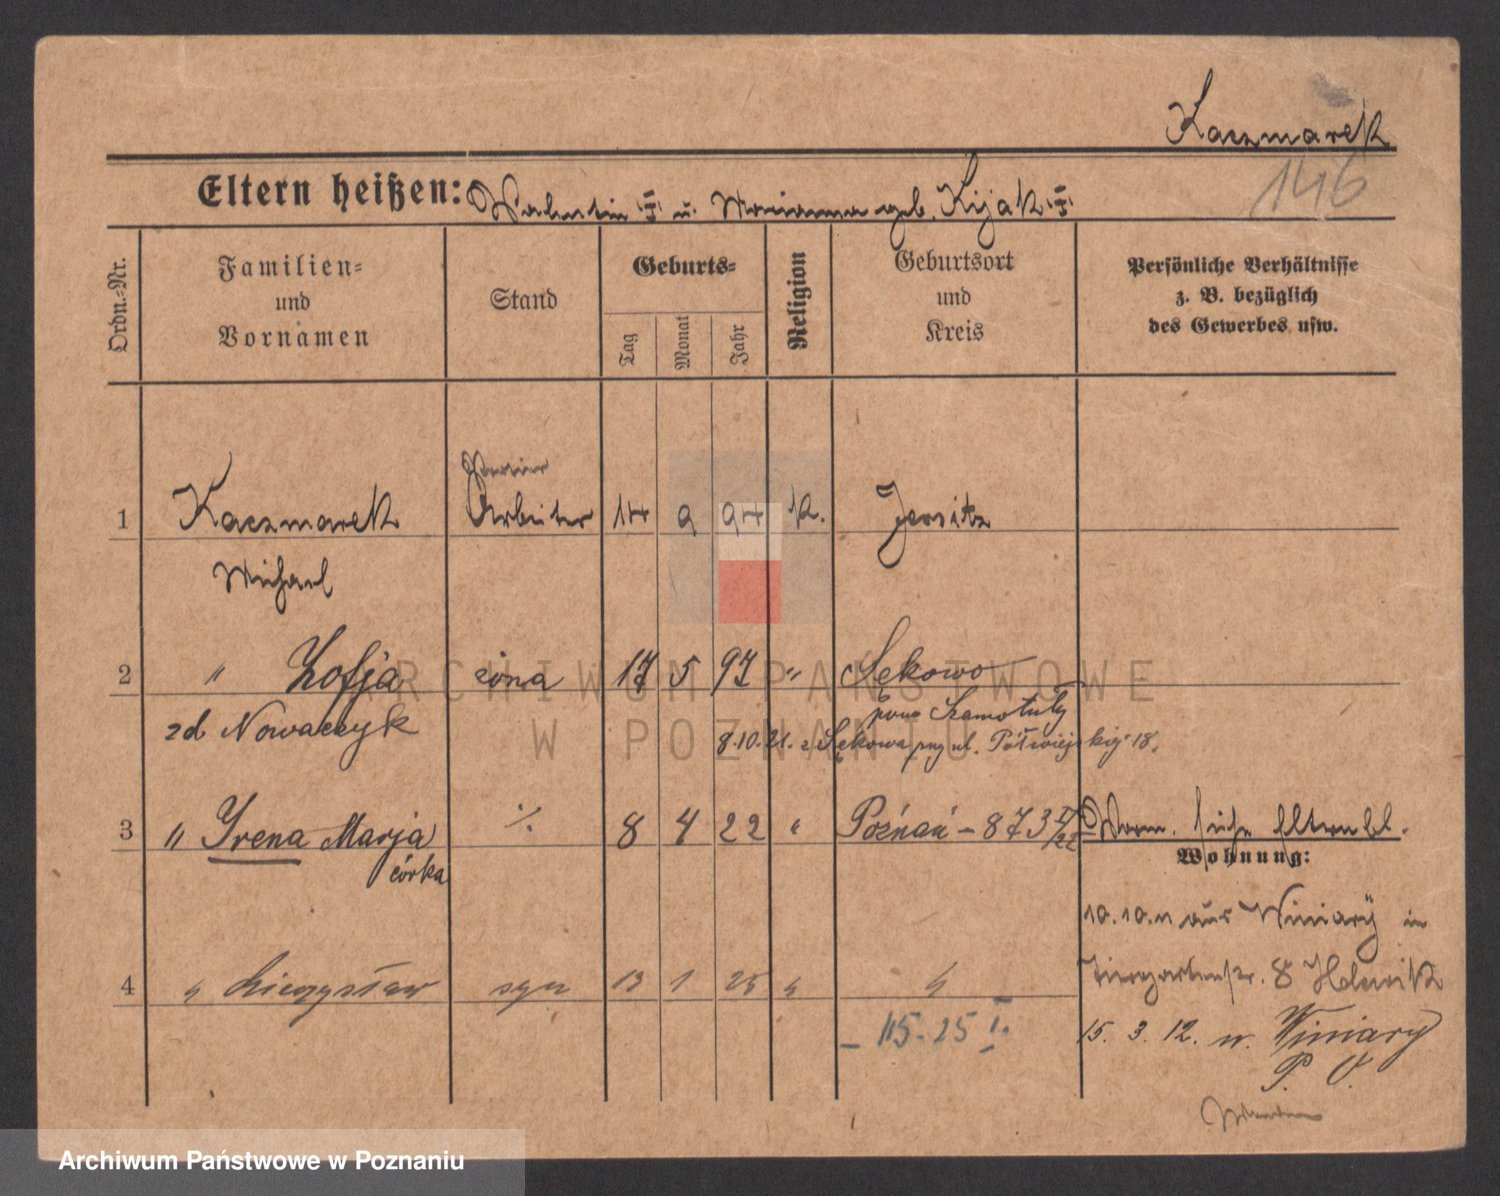 Kaczmarek
146
Eltern heißen: Valentin u. Marianna geb. Kijak
Ordn.-Nr.
Familien-
und
Vornamen
Stand
Geburts-
Tag
Monat
Jahr
Religion
Geburtsort
und
Kreis
Persönliche Verhältnisse
z. B. bezüglich
des Gewerbes usw.
1 Kaczmarek Arbeiter 14 9 97 k. Jersitz
Michael
2 " Zofja żona 17 5 97 " Sękowo
pow Szamotuły
zd Nowaczyk
8.10.21. z Sękowa przy ul. Półwiejskiej 18.
3 " Irena Marja ./. 8 4 22 " Poznań – 873 II/22
córka
Vorm. siehe Elternbl.
Wohnung:
10.10.11 aus Winiary in
Tiergartenstr. 8
4 " Mieczysław syn 13 1 25 " "
– 115-25 I.
15. 3. 12. n. Winiary
P. O.
ARCHIWUM PAŃSTWOWE
W POZNANIU
Archiwum Państwowe w Poznaniu